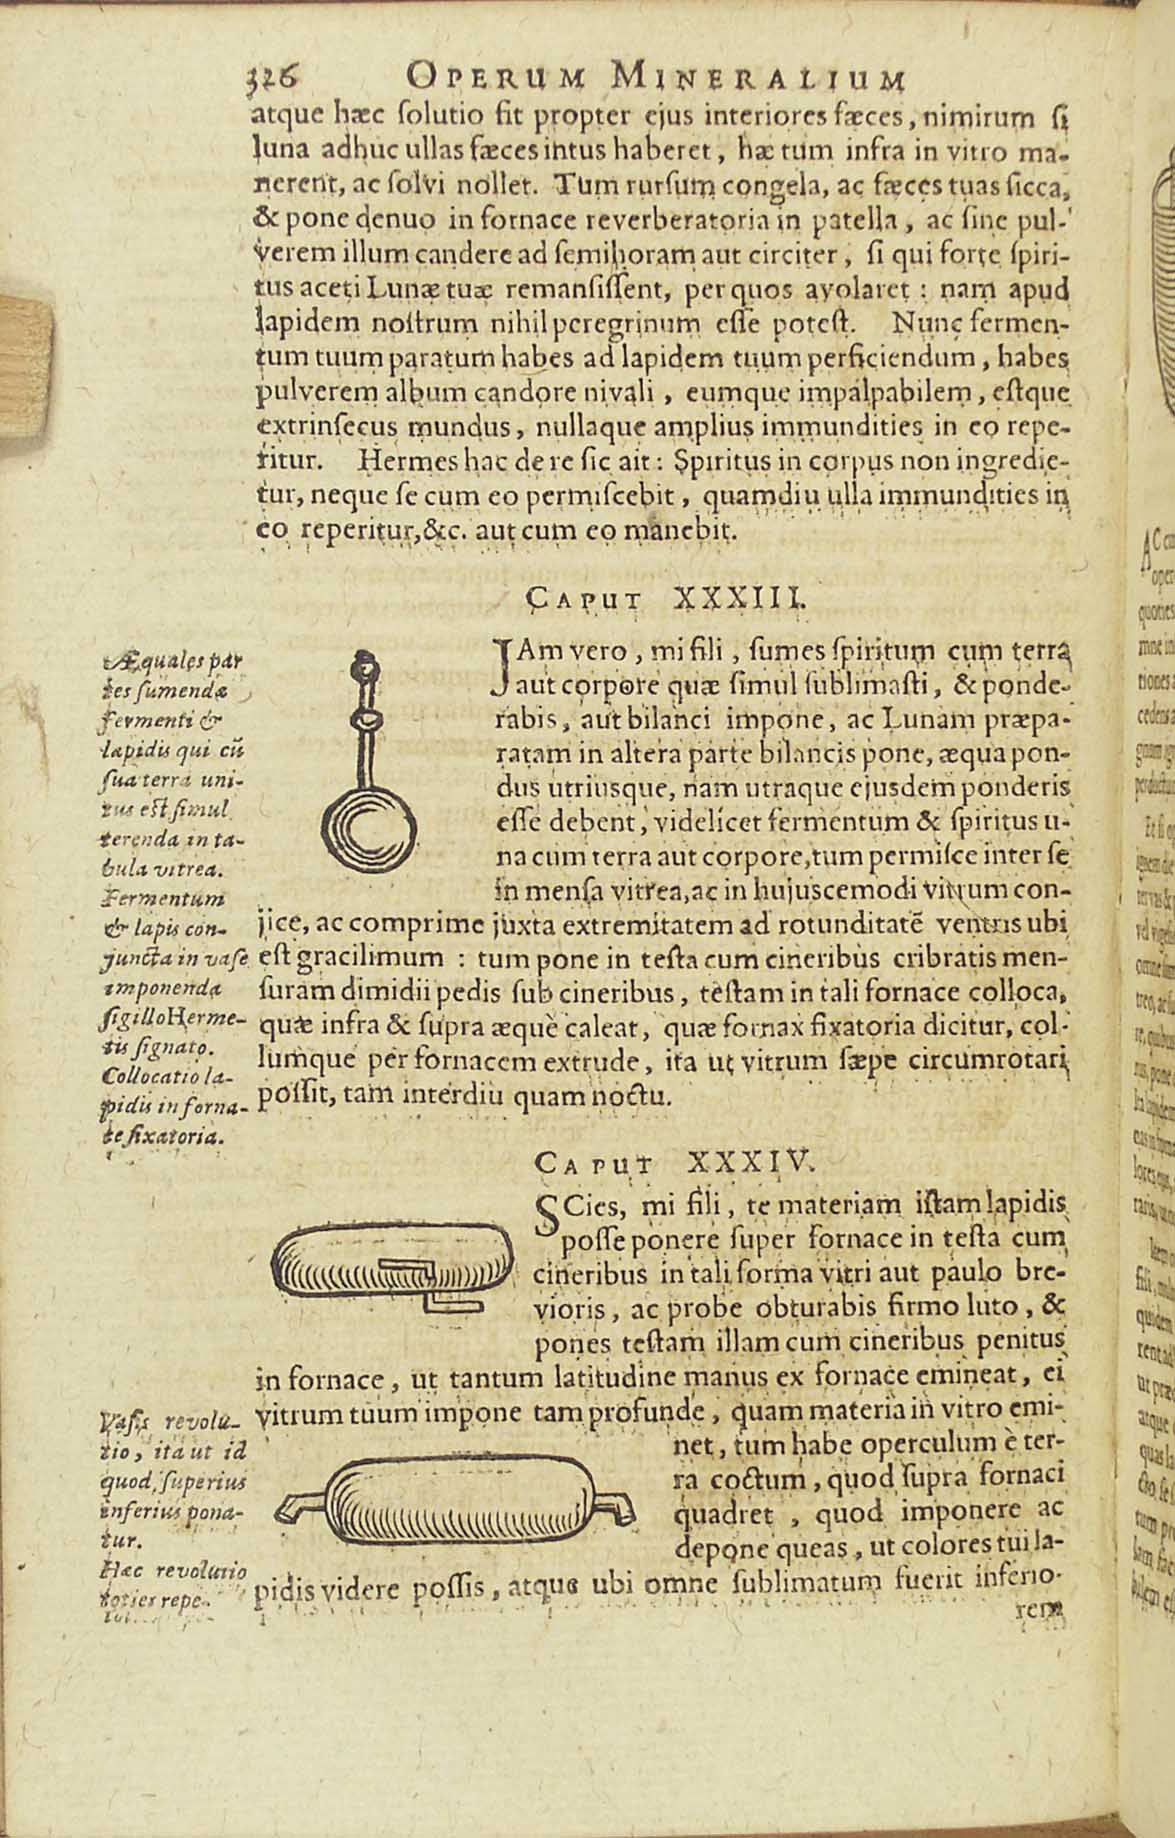 326 OPERUM MINERALIUM
atque hæc ſolutio fit propter ejus interiores fæces, nimirum ſi
luna adhuc ullas fæces intus haberet, hæ tum infra in vitro ma-
nerent, ac ſolvi nollet. Tum rurſum congela, ac fæces tuas ſicca,
& pone denuo in fornace reverberatoria in patella, ac ſine pul-
verem illum candere ad ſemihoram aut circiter, ſi qui forte ſpiri-
tus aceti Lunæ tuæ remanſiſſent, per quos avolaret: nam apud
lapidem noſtrum nihil peregrinum eſſe poteſt. Nunc fermen-
tum tuum paratum habes ad lapidem tuum perficiendum, habes
pulverem album candore nivali, eumque impalpabilem, eſtque
extrinſecus mundus, nullaque amplius immundities in eo repe-
ritur. Hermes hac de re ſic ait: Spiritus in corpus non ingredie-
tur, neque ſe cum eo permiſcebit, quamdiu ulla immundities in
eo reperitur, &c. aut cum eo manebit.
CAPUT XXXIII.
JAm vero, mi fili, ſumes ſpiritum cum terra
aut corpore quæ ſimul ſublimaſti, & ponde-
rabis, aut bilanci impone, ac Lunam præpa-
ratam in altera parte bilancis pone, æqua pon-
dus utriusque, nam utraque ejusdem ponderis
eſſe debent, videlicet fermentum & ſpiritus u-
na cum terra aut corpore, tum permiſce inter ſe
in menſa vitrea, ac in hujuscemodi vitrum con-
jice, ac comprime juxta extremitatem ad rotunditatē ventris ubi
eſt gracilimum : tum pone in teſta cum cineribus cribratis men-
ſuram dimidii pedis ſub cineribus, teſtam in tali fornace colloca,
quæ infra & ſupra æquè caleat, quæ fornax fixatoria dicitur, col-
lumque per fornacem extrude, ita ut vitrum ſæpe circumrotari
poſſit, tam interdiu quam noctu.
Æquales par
tes ſumendæ
fermenti &
lapidis qui cū
ſua terra uni-
tus eſt ſimul
terenda in ta-
bula vitrea.
Fermentum
& lapis con-
juncta in vaſe
imponenda
ſigillo Herme-
tis ſignato.
Collocatio la-
pidis in forna-
te fixatoria.
CAPUT XXXIV.
SCies, mi fili, te materiam iſtam lapidis
poſſe ponere ſuper fornace in teſta cum
cineribus in tali forma vitri aut paulo bre-
vioris, ac probe obturabis firmo luto, &
pones teſtam illam cum cineribus penitus
in fornace, ut tantum latitudine manus ex fornace emineat, ei
vitrum tuum impone tam profunde, quam materia in vitro emi-
net, tum habe operculum è ter-
ra coctum, quod ſupra fornaci
quadret, quod imponere ac
depone queas, ut colores tui la-
pidis videre poſſis, atque ubi omne ſublimatum fuerit inferio-
rem
Vaſis revolu-
tio, ita ut id
quod ſuperius
inferius pona-
tur.
Hæc revolutio
toties repe-